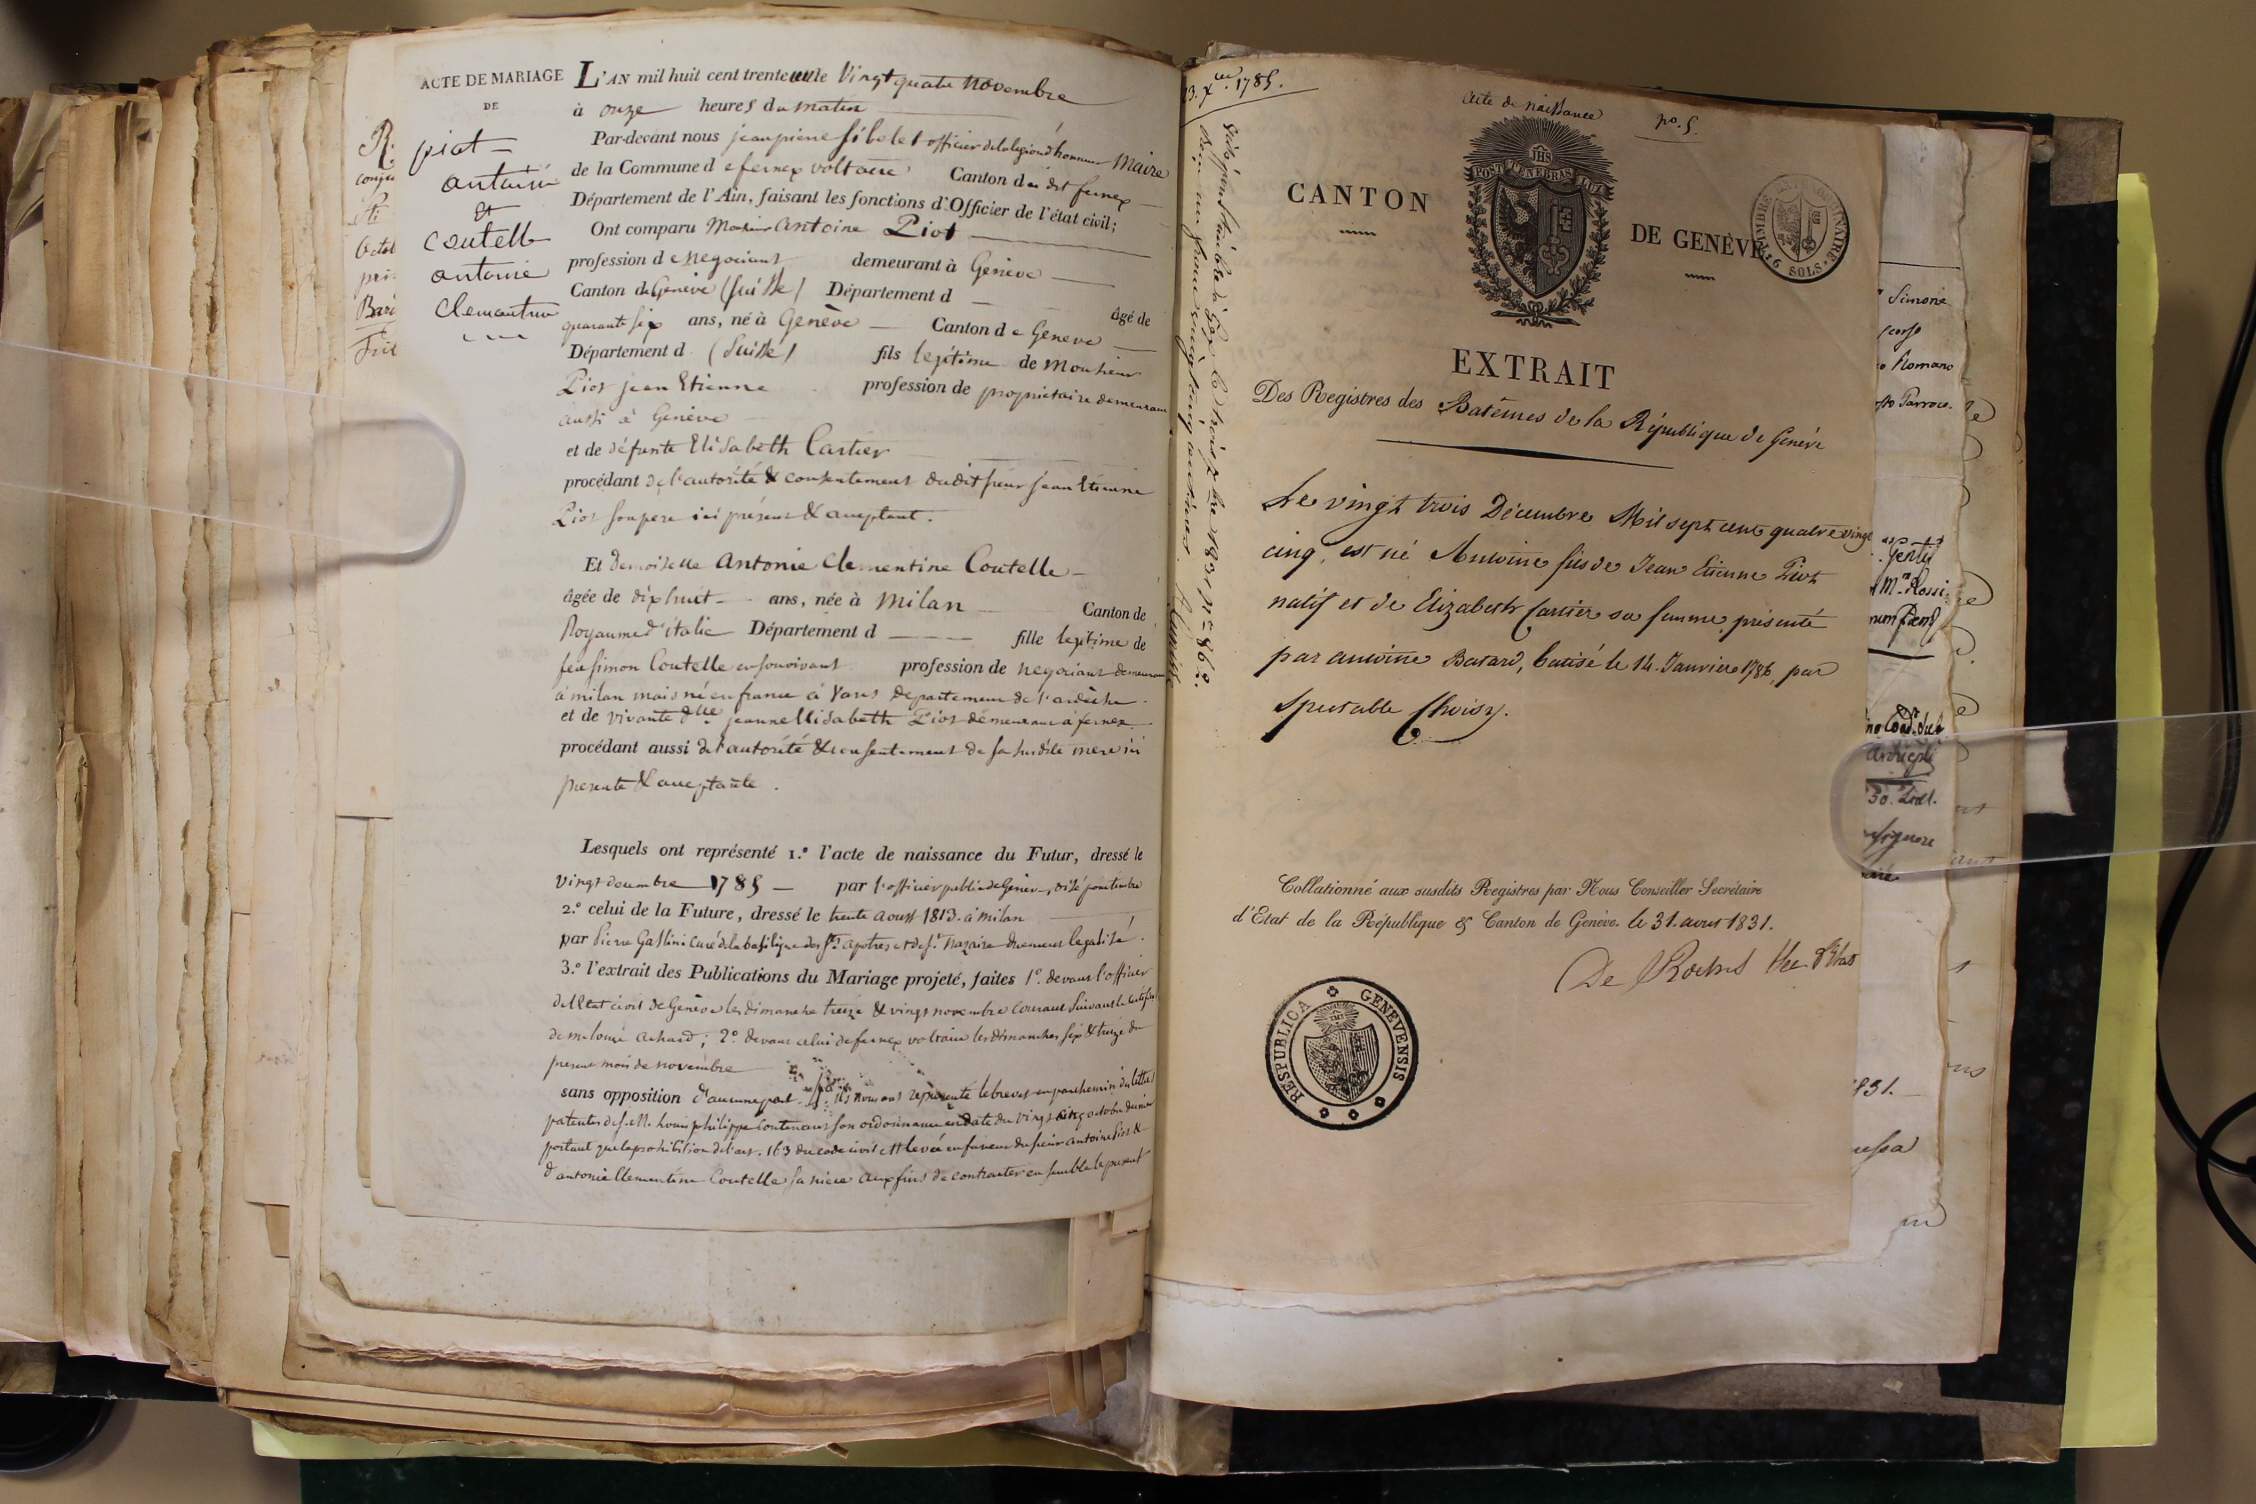 ACTE DE MARIAGE
DE
piot
antoine
Et
Coutelle
antonie
Clementine
L'AN mil huit cent trente un le Vingt quatre Novembre
à onze heures du matin
Par-devant nous jean pierre officier de la legion d'honneur Maire
de la Commune de fernex voltaire Canton du dit fernex
Département de l'Ain, faisant les fonctions d'Officier de l'état civil;
Ont comparu Monsieur Antoine Piot
profession de Negociant demeurant à Genève
Canton de Genève (Suisse) Département d
âgé de
quarante six ans, né à Genève Canton de Geneve
Département d (Suisse) fils legitime de Monsieur
Piot jean Etienne profession de propriétaire demeurant
aussi à Genève
et de défunte Elisabeth Cartier
procédant de l'autorité & consentement dudit sieur jean Etienne
Piot son pere ici présent & acceptant.
Et demoiselle Antonie Clementine Coutelle
âgée de dix huit ans, née à Milan Canton de
Royaume d'italie Département d fille legitime de
feu simon Coutelle en son vivant profession de negociant demeurant
à milan mais né en france à Vans departement de l'ardèche
et de vivante dlle jeanne Elisabeth Piot demeurant à fernex
procédant aussi de l'autorité & consentement de sa susdite mere ici
presente & acceptante.
Lesquels ont représenté 1.º l'acte de naissance du Futur, dressé le
Vingt decembre 1785 par l'officier public de Genève, visé pour timbre
2.º celui de la Future, dressé le trente aoust 1813. à milan
par Pierre curé de la basilique des Sts apotres et de St Nazaire duement legalisé.
3.º l'extrait des Publications du Mariage projeté, faites 1º. devant l'officier
de l'Etat civil de Genève les dimanche treize & vingt novembre courant suivant le certificat
de achard; 2º. devant celui de fernex voltaire les dimanches six & treize du
present mois de novembre
sans opposition d'aucune part. ils nous ont représenté le brevet en parchemin du lettres
patentes de S. M. Louis philippe contenant son ordonnance en date du vingt cinq octobre dernier
portant que la prohibition de l'art. 163 du code civil est levée en faveur du sieur antoine Piot &
d'antonie Clementine Coutelle sa niece aux fins de contracter ensemble le present
23. Xbre. 1785.
acte de naissance
no. 5.
Visé pour timbre à Gex le trois Xbre 1831 Nº 862.
Reçu un franc
POST TENEBRAS LUX
IHS
CANTON
DE GENÈVE
TIMBRE EXTRAORDINAIRE
16 SOLS
EXTRAIT
Des Registres des Batêmes de la République de Genève
Le vingt trois Décembre Mil sept cent quatre vingt
cinq, est né Antoine fils de Jean Etienne Piot
natif et de Elizabeth Cartier sa femme, présenté
par antoine Batard, batisé le 14. Janvier 1786, par
spectable Choisy.
Collationné aux susdits Registres par Nous Conseiller Secrétaire
d'Etat de la République & Canton de Genève. le 31. aout 1831.
De Roches
RESPUBLICA GENEVENSIS
Simone
Romano
Parroco.
Gentil
Rossi
1831.